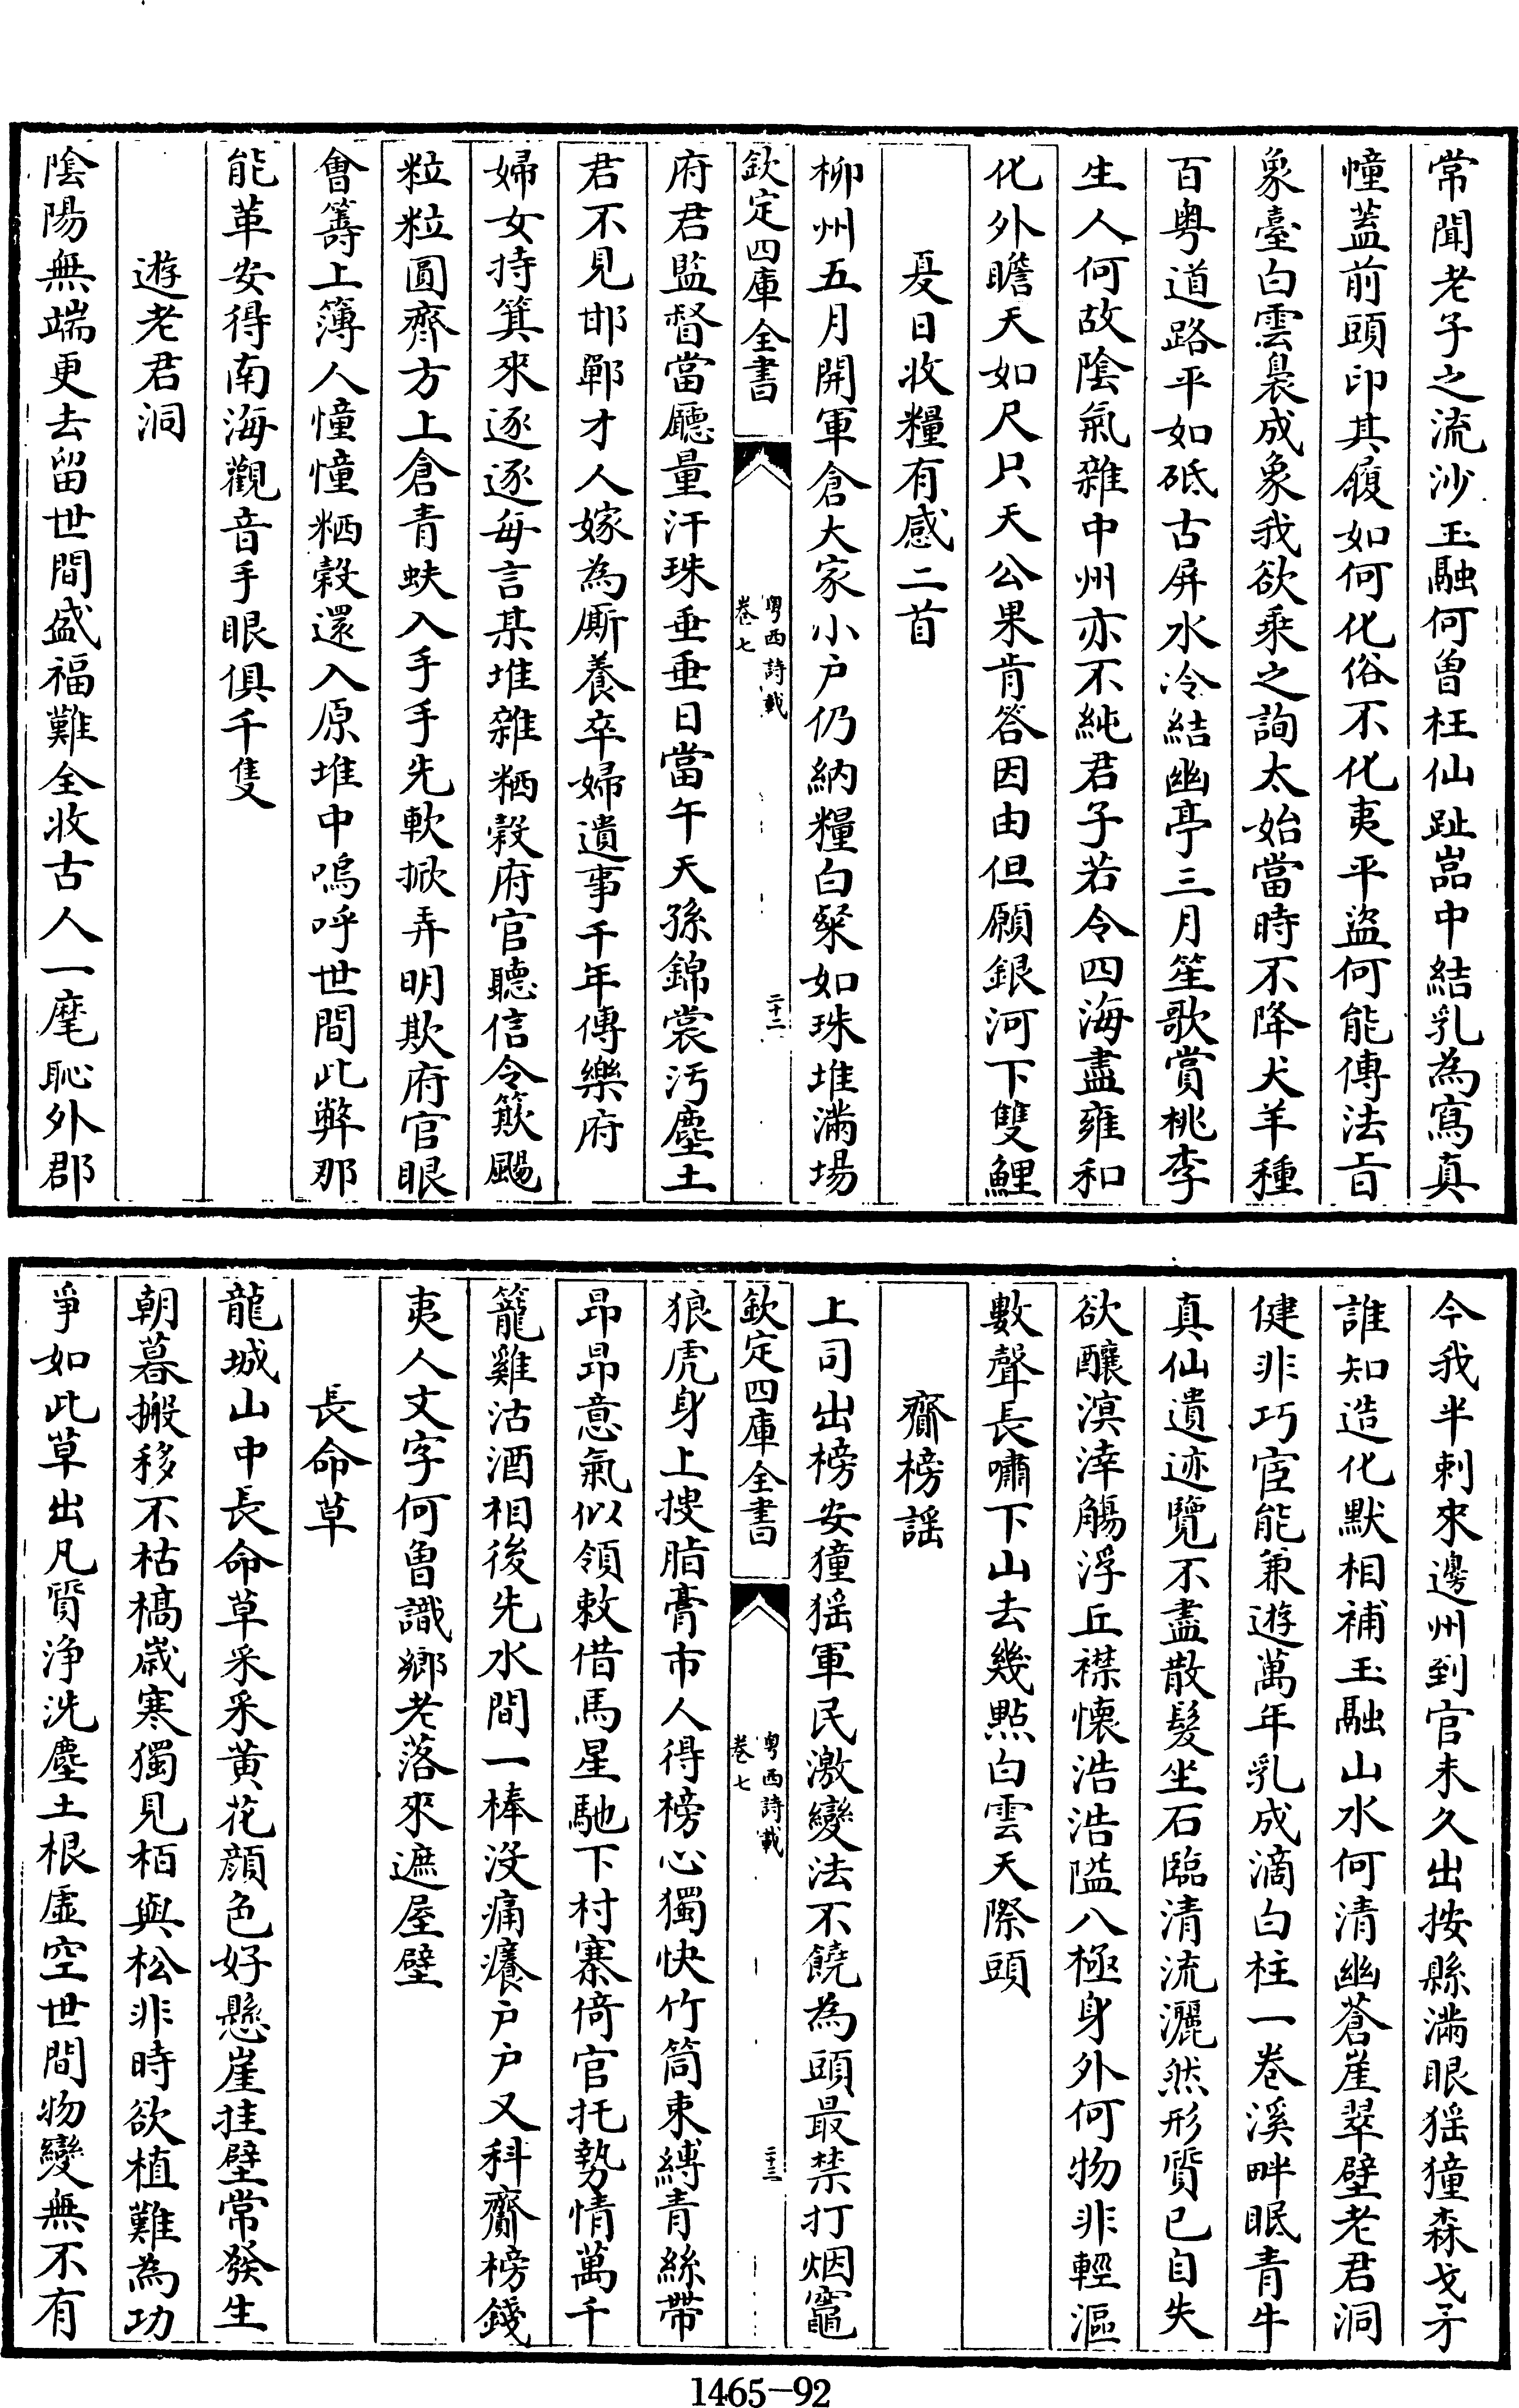 常聞老子之流沙玉融何曾枉仙趾喦中結乳為寫真
幢蓋前頭印其履如何化俗不化夷平盜何能傳法旨
象臺白雲裊成象我欲乘之詢太始當時不降犬羊種
百粵道路平如砥古屏水冷結幽亭三月笙歌賞桃李
生人何故陰氣雜中州亦不純君子若令四海盡雍和
化外瞻天如尺只天公果肯答因由但願銀河下雙鯉
夏日收糧有感二首
柳州五月開軍倉大家小户仍納糧白粲如珠堆滿場
欽定四庫全書
粵西詩載
卷七
二十二
府君監督當廳量汗珠垂垂日當午天孫錦裳汚塵土
君不見邯鄲才人嫁為厮養卒婦遺事千年傳樂府
婦女持箕來逐逐每言某堆雜粞穀府官聽信令簸颺
粒粒圓齊方上倉青蚨入手手先軟掀弄明欺府官眼
會籌上簿人憧憧粞穀還入原堆中嗚呼世間此弊那
能革安得南海觀音手眼俱千隻
遊老君洞
陰陽無端更去留世間盛福難全收古人一麾恥外郡
今我半刺來邊州到官未久出按縣滿眼猺獞森戈矛
誰知造化默相補玉融山水何清幽蒼崖翠壁老君洞
健非巧宦能兼遊萬年乳成滴白柱一巻溪畔眠青牛
真仙遺迹覽不盡散髮坐石臨清流灑然形質已自失
欲釀溟涬觴浮丘襟懷浩浩隘八極身外何物非輕漚
數聲長嘯下山去幾點白雲天際頭
齎榜謡
上司出榜安獞猺軍民激變法不饒為頭最禁打烟竈
欽定四庫全書
粵西詩載
卷七
二十三
狼虎身上搜脂膏市人得榜心獨快竹筒束縛青絲帶
昂昂意氣似領敕借馬星馳下村寨倚官托勢情萬千
籠雞沽酒相後先水間一棒没痛癢户户又科齎榜錢
夷人文字何曾識鄉老落來遮屋壁
長命草
龍城山中長命草采采黄花顔色好懸崖挂壁常發生
朝暮搬移不枯槁歲寒獨見栢與松非時欲植難為功
爭如此草出凡質浄洗塵土根虛空世間物變無不有
1465-92